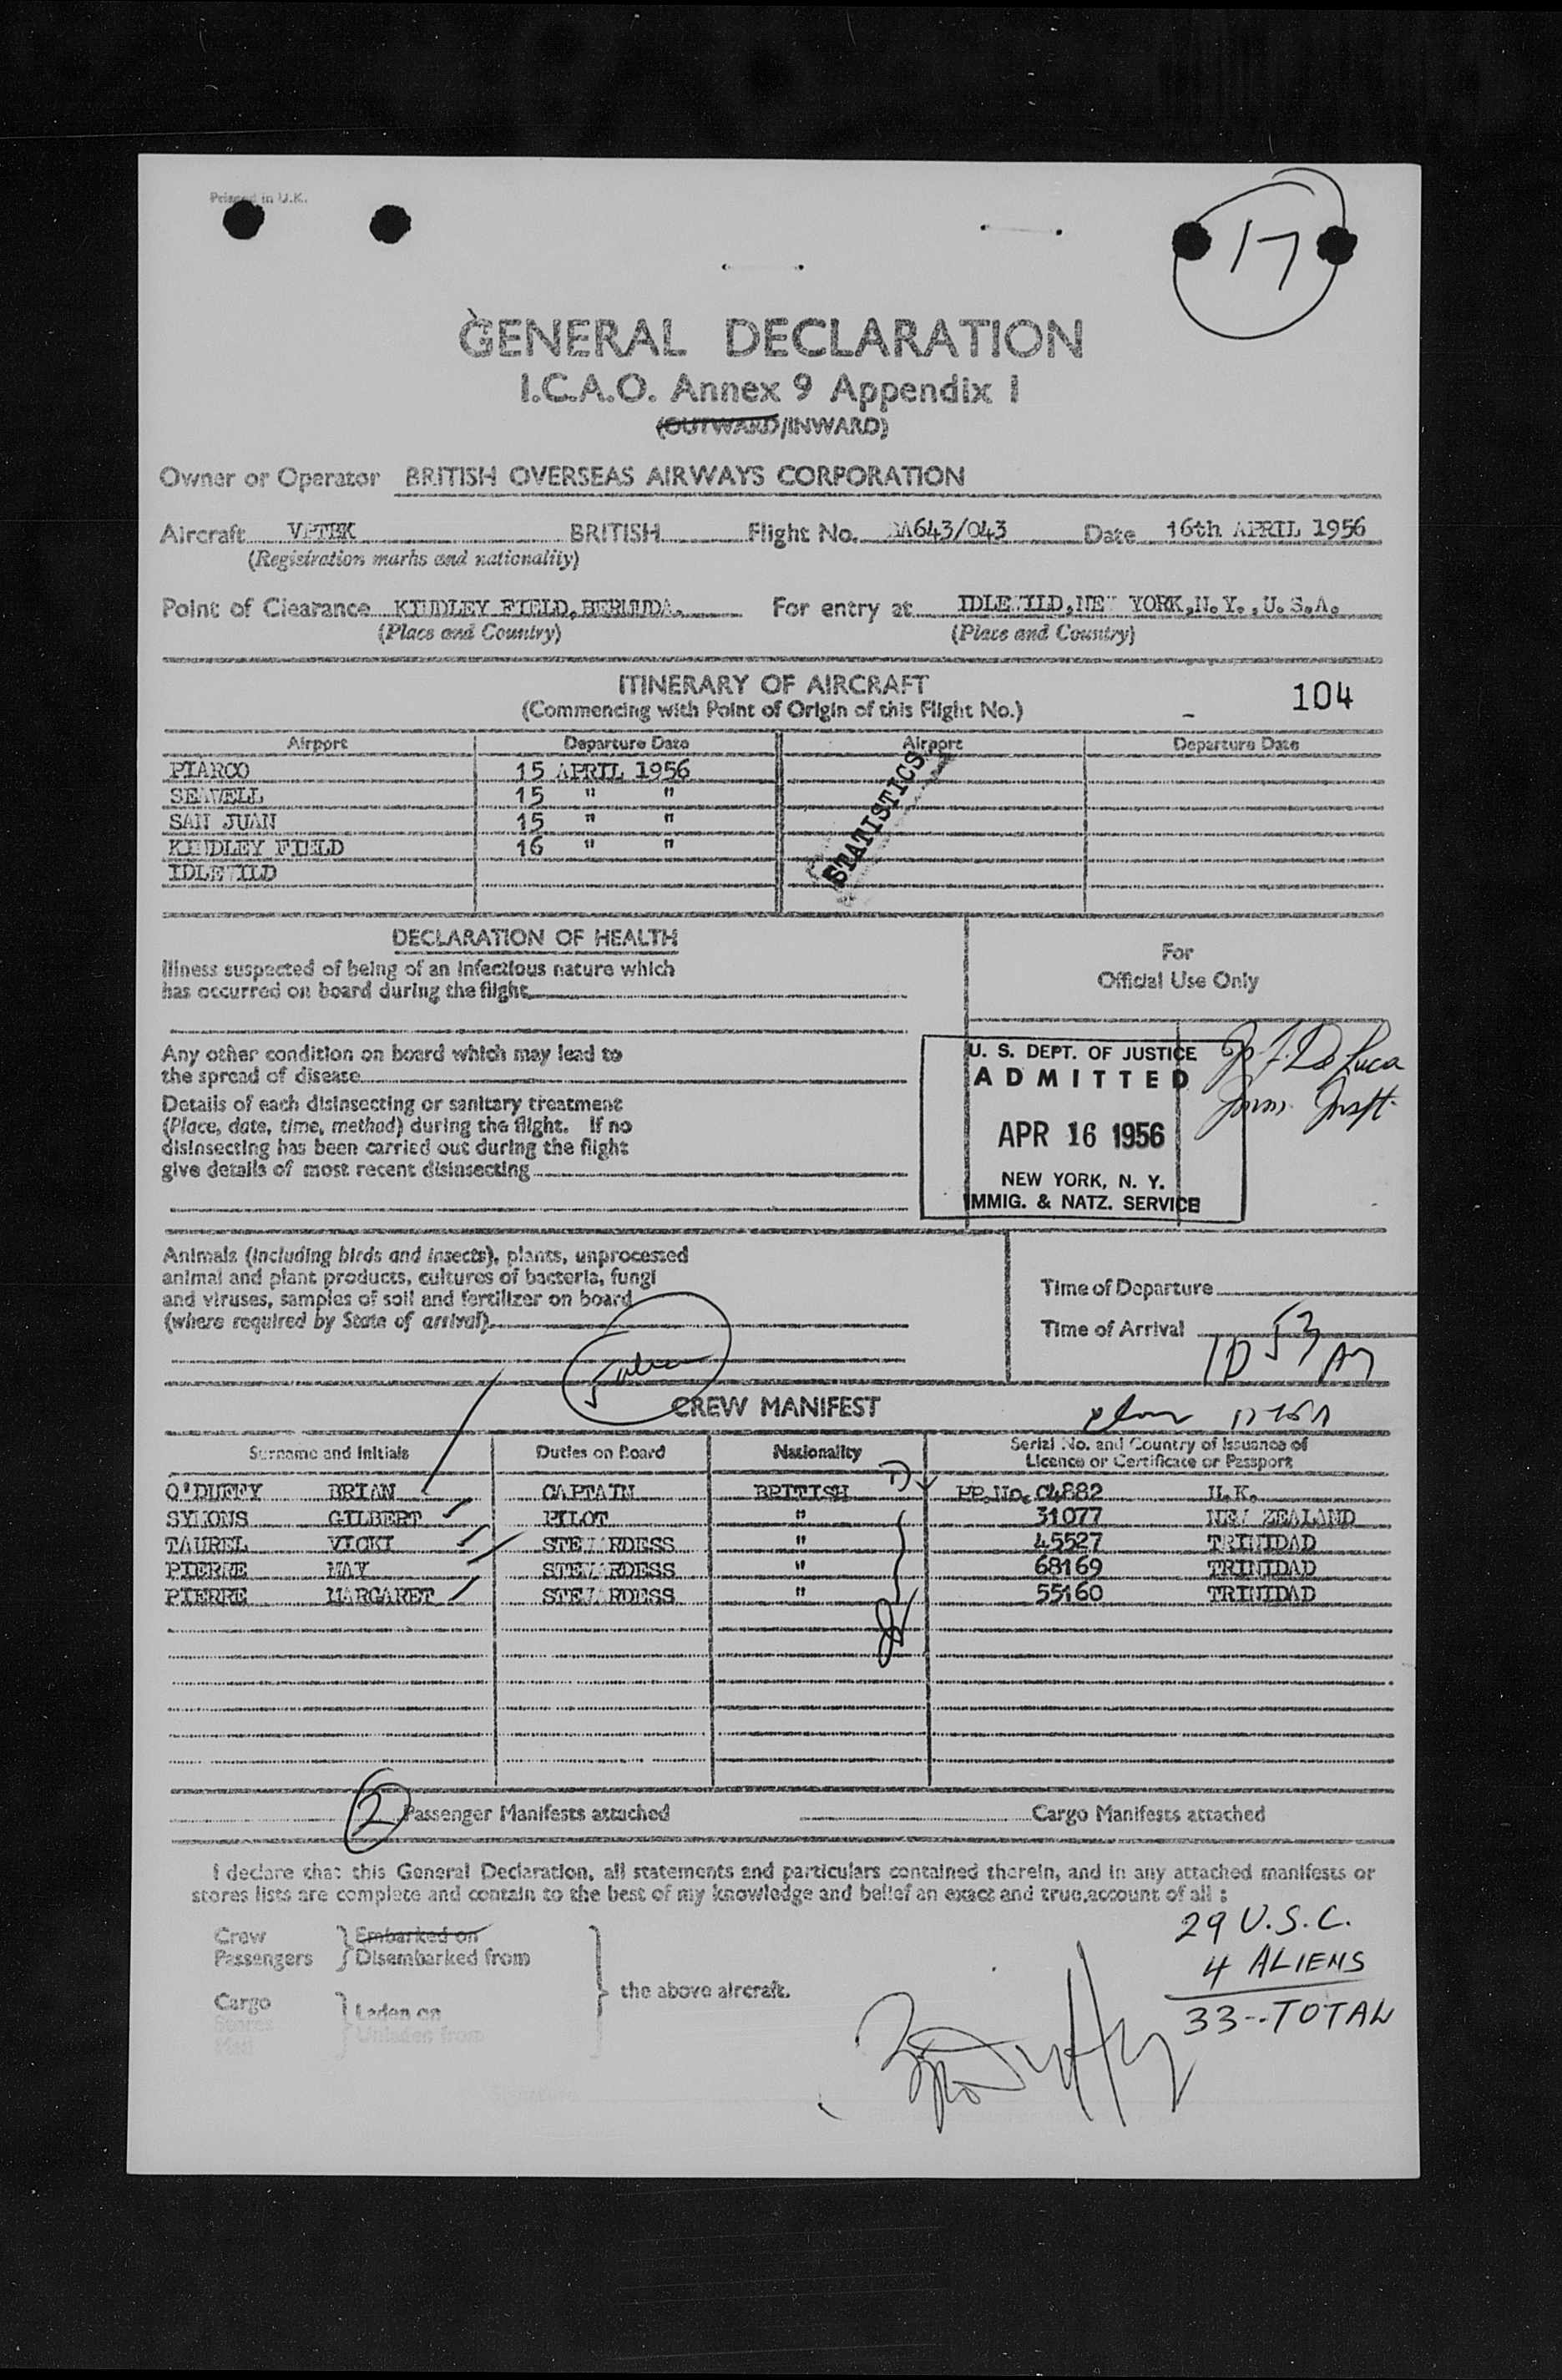 Printed in U.K.
17
GENERAL DECLARATION
I.C.A.O. Annex 9 Appendix I
(OUTWARD/INWARD)
Owner or Operator BRITISH OVERSEAS AIRWAYS CORPORATION
Aircraft VPTBK BRITISH Flight No. BA643/043 Date 16th APRIL 1956
(Registration marks and nationality)
Point of Clearance KINDLEY FIELD, BERMUDA. For entry at IDLEWILD, NEW YORK, N.Y., U.S.A.
(Place and Country) (Place and Country)
ITINERARY OF AIRCRAFT
(Commencing with Point of Origin of this Flight No.)
104
Airport Departure Date Airport Departure Date
PIARCO 15 APRIL 1956
SEAWELL 15 " "
SAN JUAN 15 " "
KINDLEY FIELD 16 " "
IDLEWILD
STATISTICS
DECLARATION OF HEALTH
Illness suspected of being of an infectious nature which
has occurred on board during the flight
Any other condition on board which may lead to
the spread of disease
Details of each disinsecting or sanitary treatment
(Place, date, time, method) during the flight. If no
disinsecting has been carried out during the flight
give details of most recent disinsecting
For
Official Use Only
U. S. DEPT. OF JUSTICE
ADMITTED
APR 16 1956
NEW YORK, N. Y.
IMMIG. & NATZ. SERVICE
De Luca
Imm. Inspt.
Animals (including birds and insects), plants, unprocessed
animal and plant products, cultures of bacteria, fungi
and viruses, samples of soil and fertilizer on board
(where required by State of arrival)
Time of Departure
Time of Arrival 10 53 AM
5
CREW MANIFEST
Surname and Initials Duties on Board Nationality Serial No. and Country of Issuance of
Licence or Certificate or Passport
O'DUFFY BRIAN CAPTAIN BRITISH PP.No. C4882 U.K.
SYMONS GILBERT PILOT " 31077 NEW ZEALAND
TAUREL VICKI STEWARDESS " 45527 TRINIDAD
PIERRE MAY STEWARDESS " 68169 TRINIDAD
PIERRE MARGARET STEWARDESS " 55160 TRINIDAD
2 Passenger Manifests attached Cargo Manifests attached
I declare that this General Declaration, all statements and particulars contained therein, and in any attached manifests or
stores lists are complete and contain to the best of my knowledge and belief an exact and true, account of all :
Crew Embarked on
Passengers Disembarked from
the above aircraft.
Cargo Laden on
Stores
Mail Unladen from
29 U.S.C.
4 ALIENS
33--TOTAL